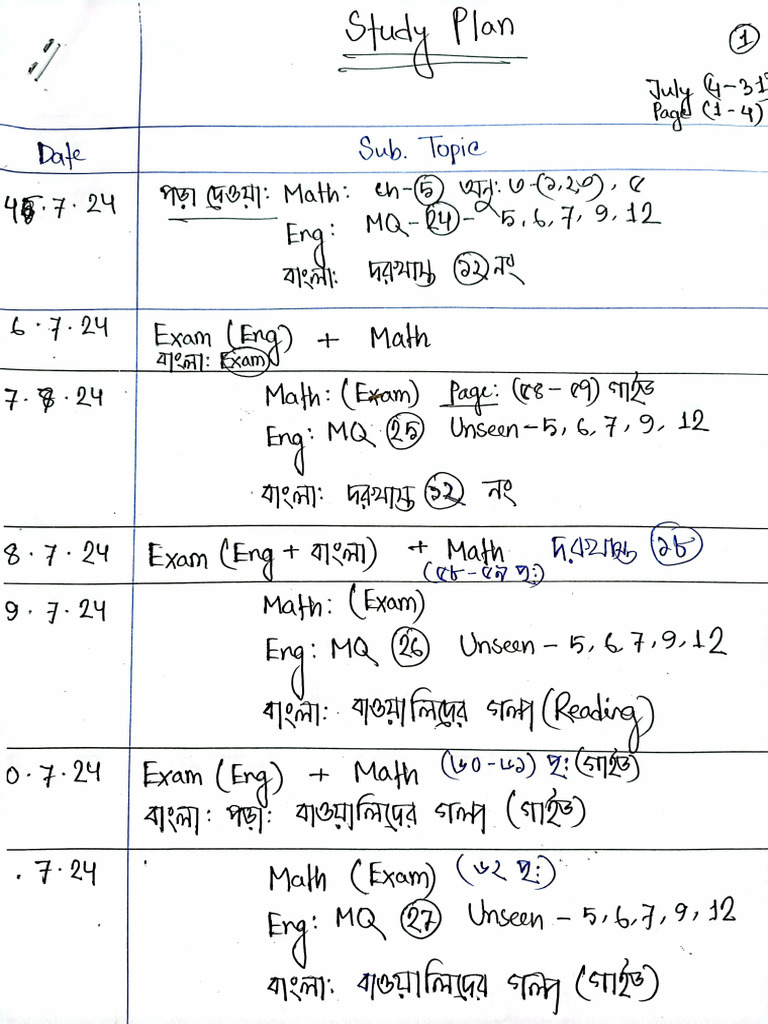 Study Plan
1
July (4-31)
Page (1-4)
Date
Sub. Topic
4.7.24
পড়া দেওয়া: Math: ch-5 অনু: ৩-(১,২,৩), ৫
Eng: MQ-24- 5, 6, 7, 9, 12
বাংলা: দরখাস্ত ১২ নং
6.7.24
Exam (Eng) + Math
বাংলা: Exam
7.7.24
Math: (Exam) Page: (৫৪-৫৭) গাইড
Eng: MQ 25 Unseen-5, 6, 7, 9, 12
বাংলা: দরখাস্ত ১২ নং
8.7.24
Exam (Eng + বাংলা) + Math দরখাস্ত ১৮
(৫৮-৫৯ পৃ:)
9.7.24
Math: (Exam)
Eng: MQ 26 Unseen - 5, 6, 7, 9, 12
বাংলা: বাওয়ালিদের গল্প (Reading)
0.7.24
Exam (Eng) + Math (৬০-৬১) পৃ: (গাইড)
বাংলা: পড়া: বাওয়ালিদের গল্প (গাইড)
.7.24
Math (Exam) (৬২ পৃ:)
Eng: MQ 27 Unseen - 5, 6, 7, 9, 12
বাংলা: বাওয়ালিদের গল্প (গাইড)